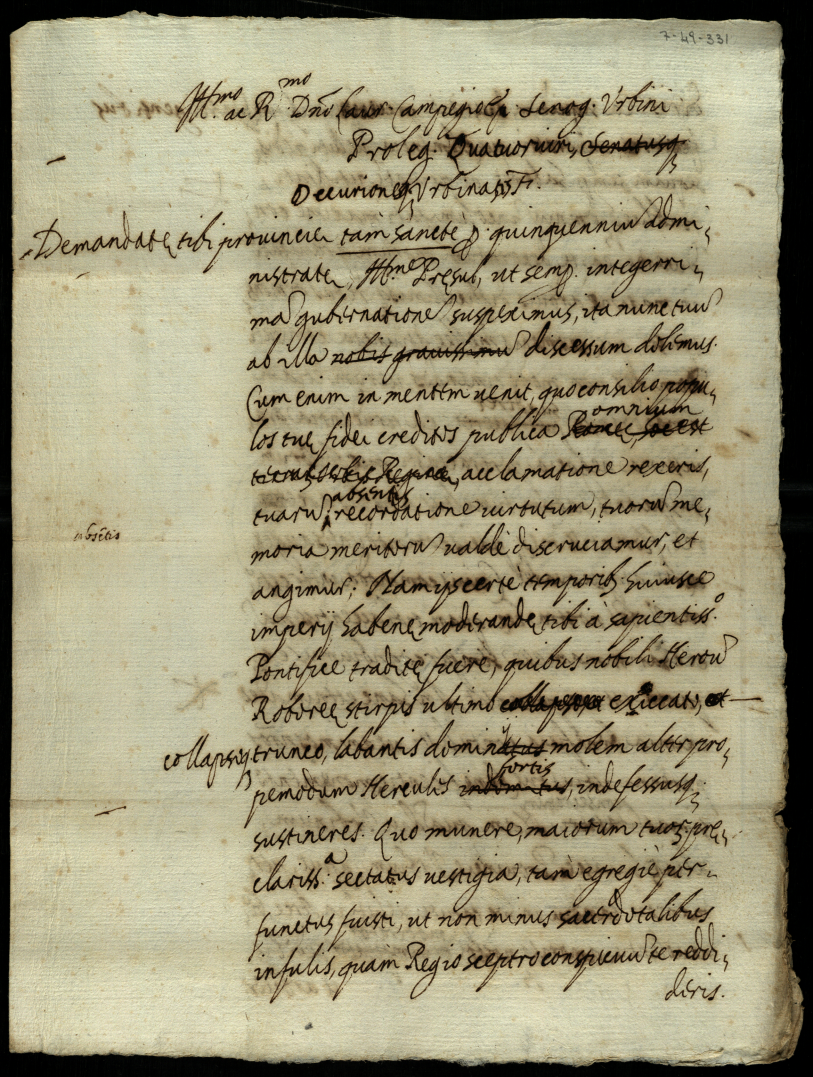 7-49-331
Ill.mo ac R.mo Dnō Laur. Campegio Ep̃. Senog. Urbini
Proleg. Quatuorviri, Senatusq;
Decurionesq; Urbinates F.
Demandatę tibi provincię tam sanctè p̱. quinquenniũ admi,
nistratę, Ill.me Pręsul, ut semp̱. integerri,
mã gubernationẽ suspeximus, ita nunc tuũ
ab illa nobis gravissimũ discessum dolemus.
Cum enim in mentem venit, quo consilio popu,
omnium
los tuę fidei creditos publica Romę, hoc est
Orbis Reginę, acclamatione rexeris,
absentis
tuarũ recordatione virtutum, tuorũ me,
absẽtis
moria meritorũ valdè discruciamur, et
angimur; Nam ijs certè temporib; huiusce
imperij habenę moderandę tibi à sapientiss.o
Pontifice traditę fuere, quibus nobili Heroũ
Roboreę stirpis ultimo exiccato, et
collapsoq; trunco, labantis dominij molem alter pro,
fortis
pemodum Herculis indomitus, indefessusq;
sustineres. Quo munere, maiorum tuoꝝ prę,
clariss.a sectatus vestigia, tam egregiè per,
functus fuisti, ut non minus sacerdotalibus
infulis, quam Regio sceptro conspicuũ te reddi,
deris.